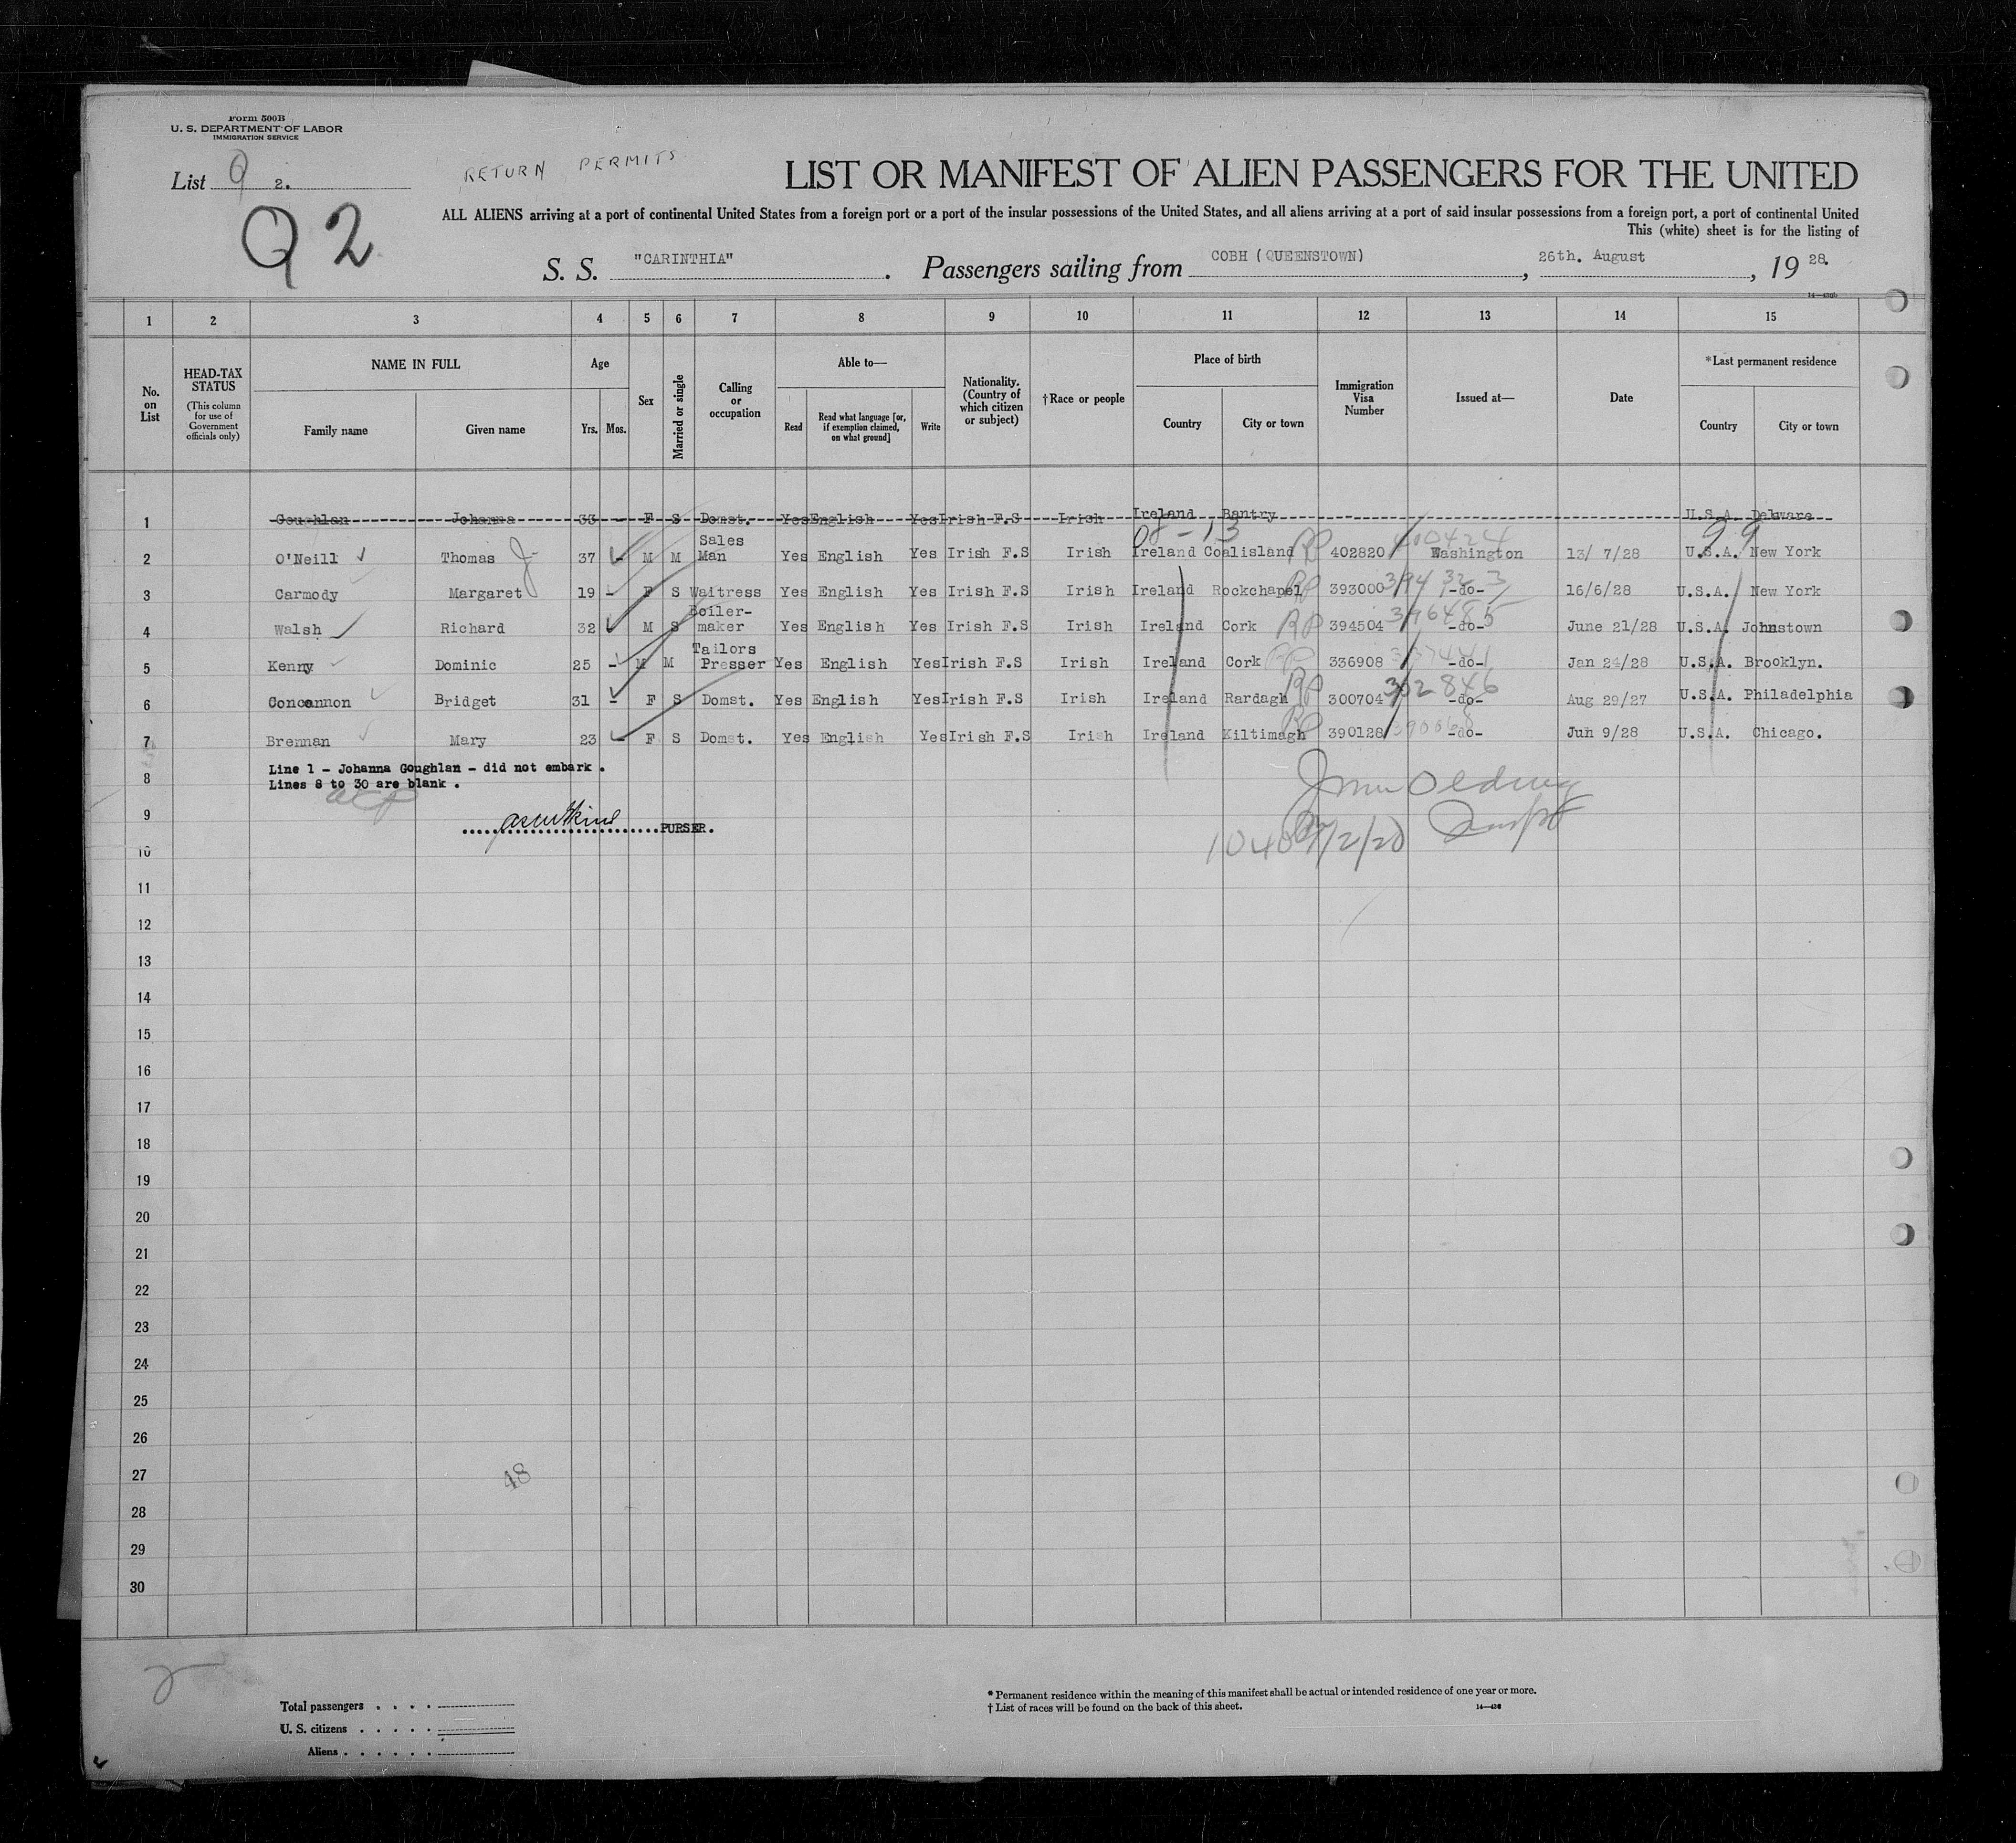 Form 500B
U. S. DEPARTMENT OF LABOR
IMMIGRATION SERVICE
List 9 2.
RETURN PERMITS
LIST OR MANIFEST OF ALIEN PASSENGERS FOR THE UNITED
Q 2
ALL ALIENS arriving at a port of continental United States from a foreign port or a port of the insular possessions of the United States, and all aliens arriving at a port of said insular possessions from a foreign port, a port of continental United
This (white) sheet is for the listing of
S. S. "CARINTHIA" . Passengers sailing from COBH (QUEENSTOWN) , 26th. August , 19 28.
1 2 3 4 5 6 7 8 9 10 11 12 13 14 15
No. on List
HEAD-TAX STATUS (This column for use of Government officials only)
NAME IN FULL Family name Given name
Age Yrs. Mos.
Sex
Married or single
Calling or occupation
Able to— Read Read what language [or, if exemption claimed, on what ground] Write
Nationality. (Country of which citizen or subject)
†Race or people
Place of birth Country City or town
Immigration Visa Number
Issued at—
Date
*Last permanent residence Country City or town
1 Goughlan Johanna 33 - F S Domst. Yes English Yes Irish F.S Irish Ireland Bantry U.S.A. Delaware
08-13 99
2 O'Neill Thomas J 37 - M M Sales Man Yes English Yes Irish F.S Irish Ireland Coalisland RP 402820 400424 Washington 13/ 7/28 U.S.A. New York
3 Carmody Margaret 19 - F S Waitress Yes English Yes Irish F.S Irish Ireland Rockchapel RP 393000 -do- 16/6/28 U.S.A. New York
4 Walsh Richard 32 M S Boiler-maker Yes English Yes Irish F.S Irish Ireland Cork RP 394504 396485 -do- June 21/28 U.S.A. Johnstown
5 Kenny Dominic 25 - M M Tailors Presser Yes English Yes Irish F.S Irish Ireland Cork RP 336908 -do- Jan 24/28 U.S.A. Brooklyn.
6 Concannon Bridget 31 - F S Domst. Yes English Yes Irish F.S Irish Ireland Rardagh RP 300704 302846 -do- Aug 29/27 U.S.A. Philadelphia
7 Brennan Mary 23 - F S Domst. Yes English Yes Irish F.S Irish Ireland Kiltimagh RP 390128 -do- Jun 9/28 U.S.A. Chicago.
Line 1 - Johanna Goughlan - did not embark .
8 Lines 8 to 30 are blank .
9 PURSER.
10
11
12
13
14
15
16
17
18
19
20
21
22
23
24
25
26
27
48
28
29
30
Total passengers . . . .
U. S. citizens . . . . .
Aliens . . . . . .
* Permanent residence within the meaning of this manifest shall be actual or intended residence of one year or more.
† List of races will be found on the back of this sheet.